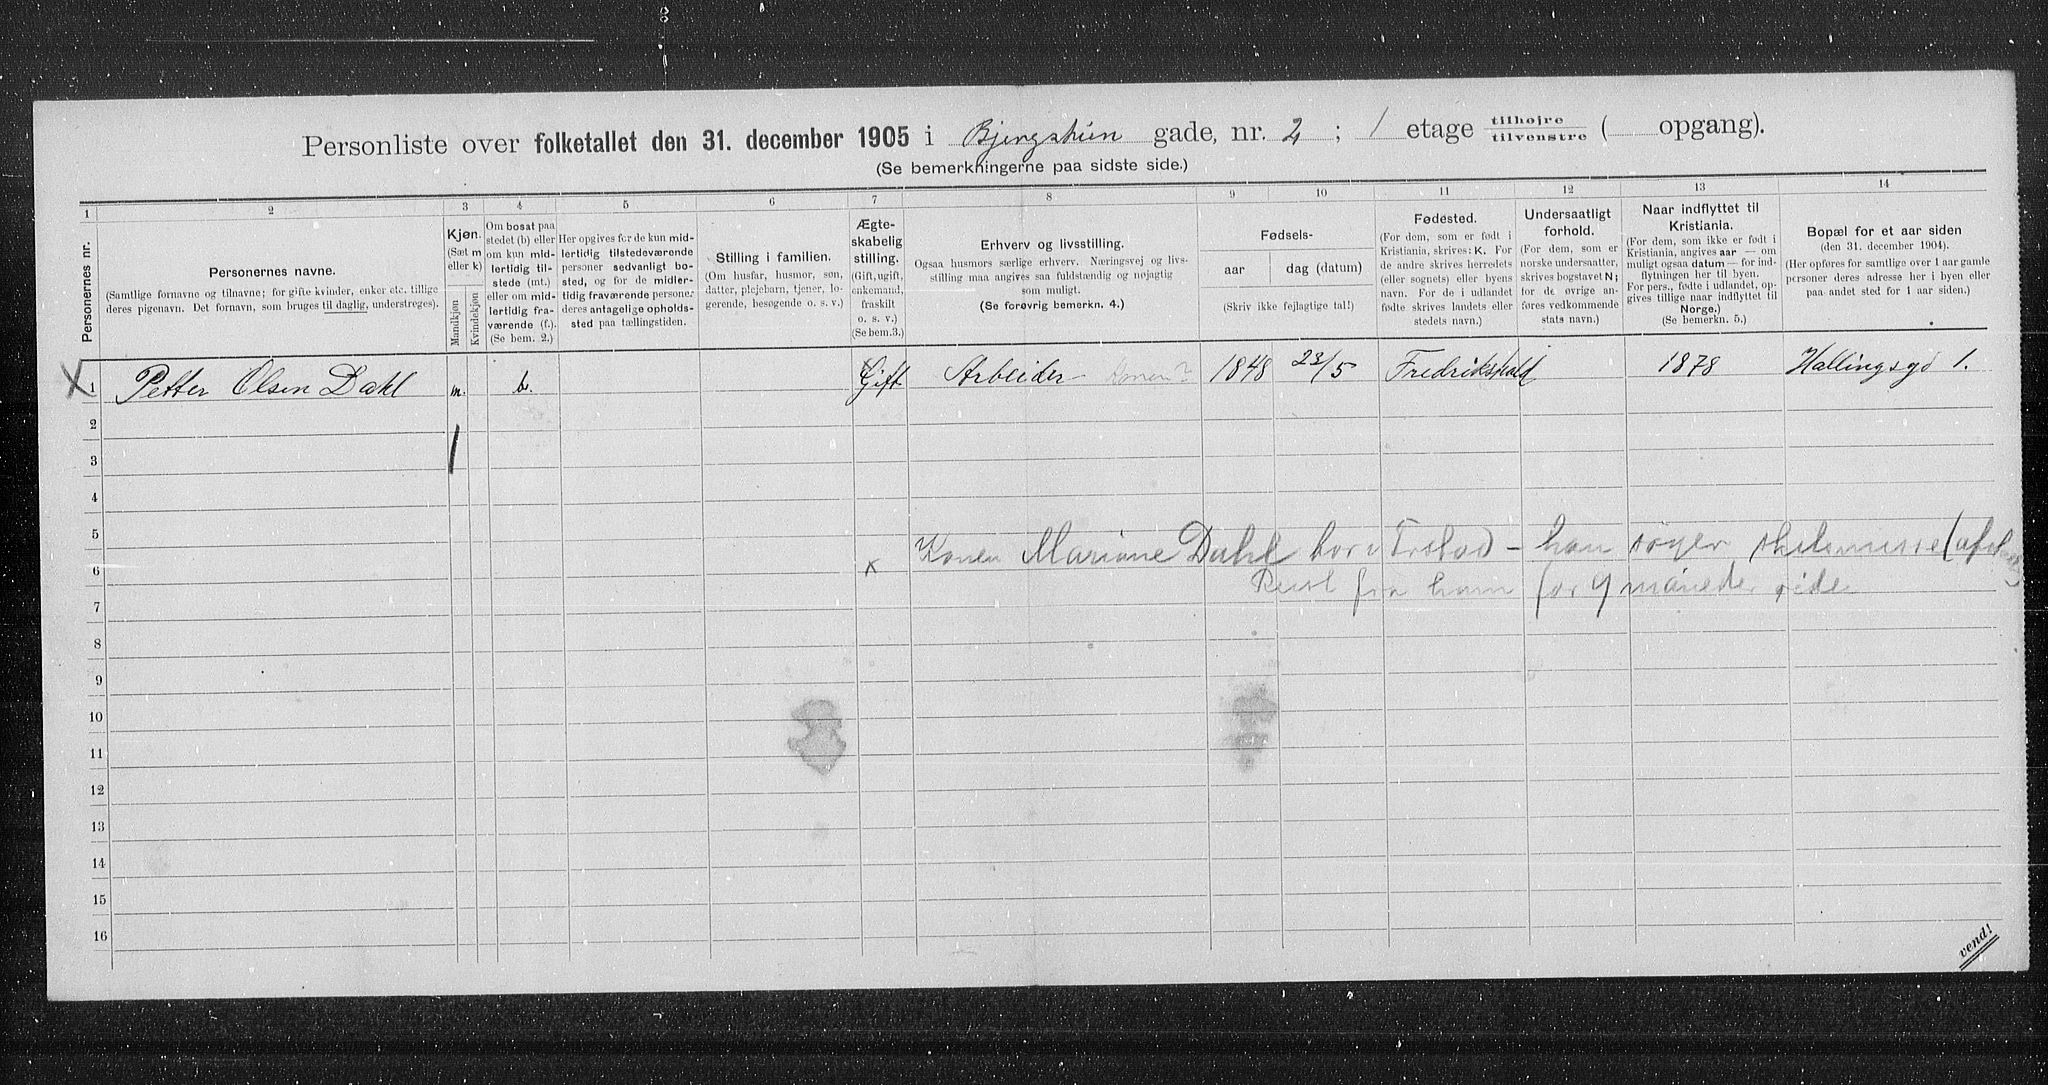 Personliste over folketallet den 31. december 1905 i gade, nr. 2; 1 etage tilhøjre tilvenstre ( opgang).
(Se bemerkningerne paa sidste side.)
1 2 3 4 5 6 7 8 9 10 11 12 13 14
Personernes nr.
Personernes navne.
(Samtlige fornavne og tilnavne; for gifte kvinder, enker etc. tillige
deres pigenavn. Det fornavn, som bruges til daglig, understreges).
Kjøn.
(Sæt m
eller k)
Mandkjøn.
Kvindekjøn.
Om bosat paa
stedet (b) eller
om kun mid-
lertidig til-
stede (mt.)
eller om mid-
lertidig fra-
værende (f.).
(Se bem. 2.)
Her opgives for de kun mid-
lertidig tilstedeværende
personer sedvanligt bo-
sted, og for de midler-
tidig fraværende personer
deres antagelige opholds-
sted paa tællingstiden.
Stilling i familien.
(Om husfar, husmor, søn,
datter, plejebarn, tjener, lo-
gerende, besøgende o. s. v.)
Ægte-
skabelig
stilling.
(Gift, ugift,
enkemand,
fraskilt
o. s. v.)
(Se bem. 3.)
Erhverv og livsstilling.
Ogsaa husmors særlige erhverv. Næringsvej og livs-
stilling maa angives saa fuldstændig og nøjagtig
som muligt.
(Se forøvrig bemerkn. 4.)
Fødsels-
aar
dag (datum)
(Skriv ikke fejlagtige tal!)
Fødested.
(For dem, som er født i
Kristiania, skrives: K. For
de andre skrives herredets
(eller sognets) eller byens
navn. For de i udlandet
fødte skrives landets eller
stedets navn.)
Undersaatligt
forhold.
(For dem, som er
norske undersaatter,
skrives bogstavet N;
for de øvrige an-
føres vedkommende
stats navn.)
Naar indflyttet til
Kristiania.
(For dem, som ikke er født i
Kristiania, angives aar — om
muligt ogsaa datum — for ind-
flytningen her til byen.
For pers., fødte i udlandet, op-
gives tillige naar indflyttet til
Norge.)
(Se bemerkn. 5.)
Bopæl for et aar siden
(den 31. december 1904).
(Her opføres for samtlige over 1 aar gamle
personer deres adresse her i byen eller
paa andet sted for 1 aar siden.)
X 1 Petter Olsen Dahl m. b. Gift Arbeider Konen? 1848 23/5 Fredrikshald 1878 Hallingsgd 1.
2
3
4
5
6 x Konen Mariane Dahl bor i - han søger skilsmisse
7 Reist fra ham for 9 måneder siden
8
9
10
11
12
13
14
15
16
vend!